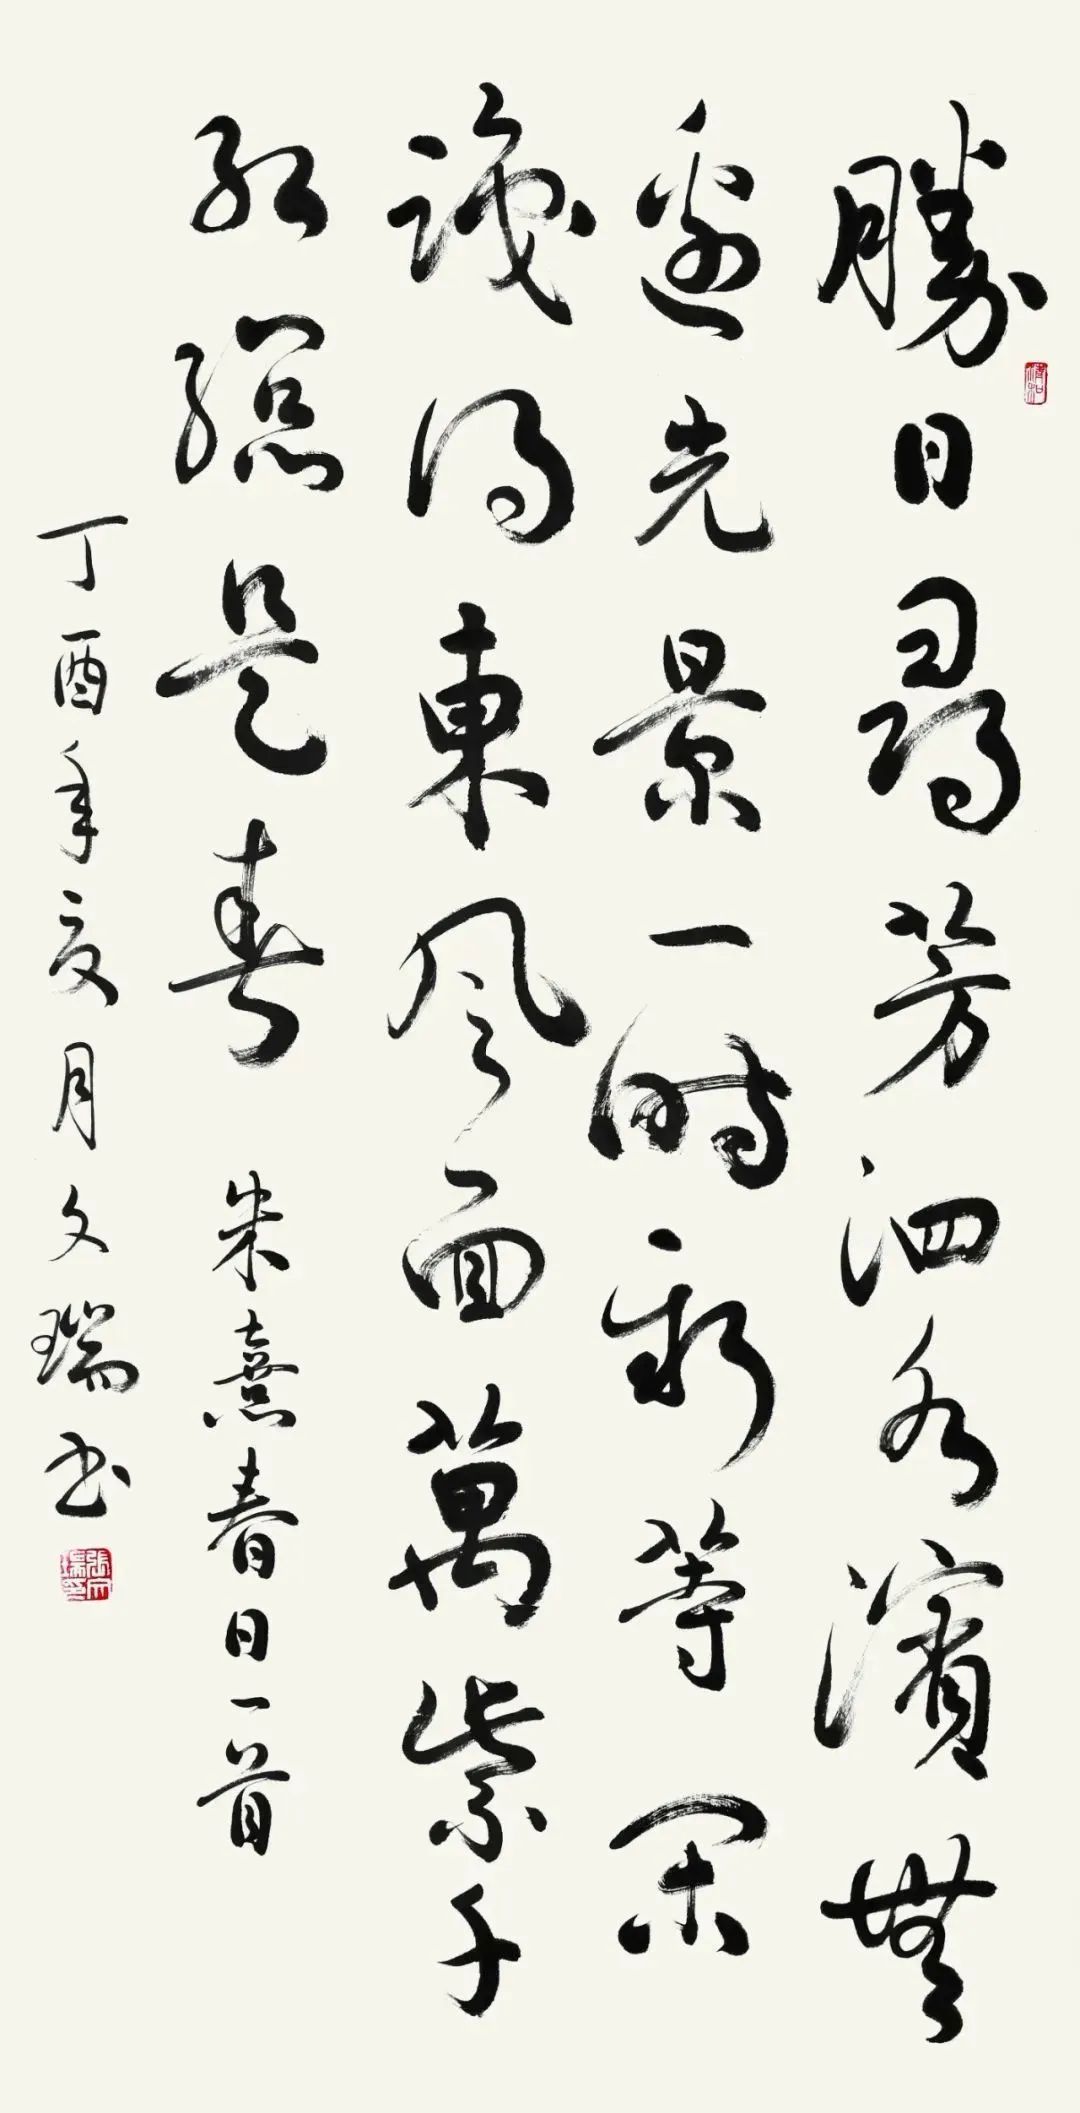 勝日尋芳泗水濱無
邊光景一時新等閑
識得東風面萬紫千
紅總是春 朱熹春日一首
丁酉年夏月文瑞书
清和
張文瑞印